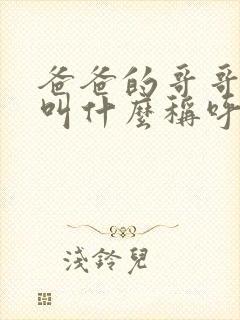 爸爸的哥哥
叫什麼稱呼
淺鈴兒